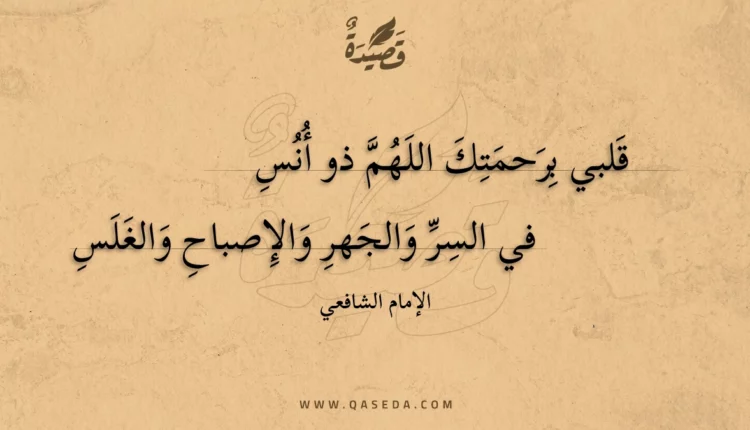 قَصِيْدَةٌ
قَلبي بِرَحمَتِكَ اللَهُمَّ ذو أُنُسِ
في السِرِّ وَالجَهرِ وَالإِصباحِ وَالغَلَسِ
الإمام الشافعي
WWW.QASEDA.COM